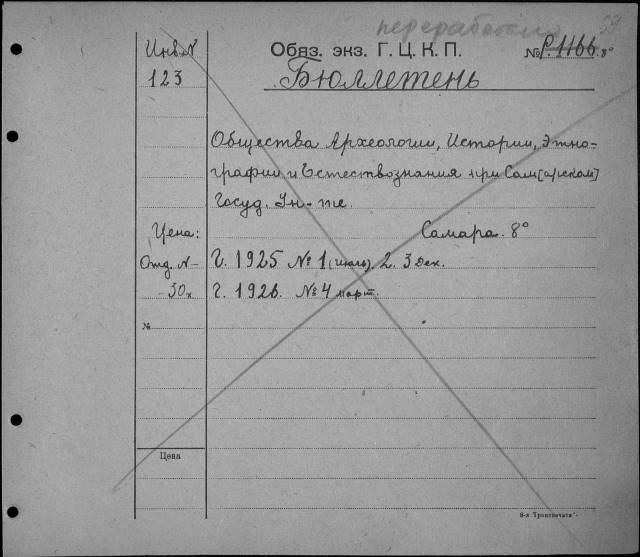 переработано 59
Инв. № Обяз. экз. Г. Ц. К. П. № Р.1166. 8°
123 Бюллетень
Общества Археологии, Истории, Этно-
графии и Естествознания при Сам[арском]
Госуд. Ун-те.
Цена: Самара. 8°
Отд. № - Г. 1925 № 1 (июль). 2. 3 дек.
50к Г. 1926. № 4 март.
№
Цена